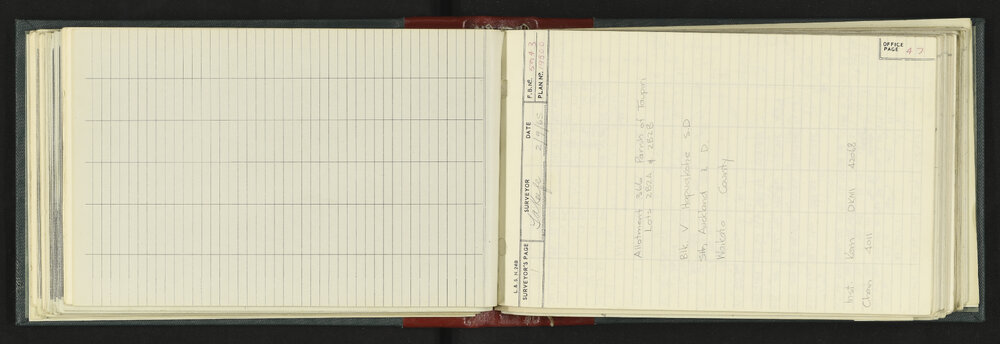 OFFICE
PAGE 47
L. & S. H 24B
SURVEYOR'S PAGE 1
SURVEYOR
DATE 2/9/65
F.B. Nº. 5943
PLAN Nº. 19800
Allotment 366 Parish of Taupiri
Lots 2B2A & 2B2B
Blk. V Hapuakohe S.D
Sth Auckland L D
Waikato County
Inst Kern DKM 42068
Chain 1011